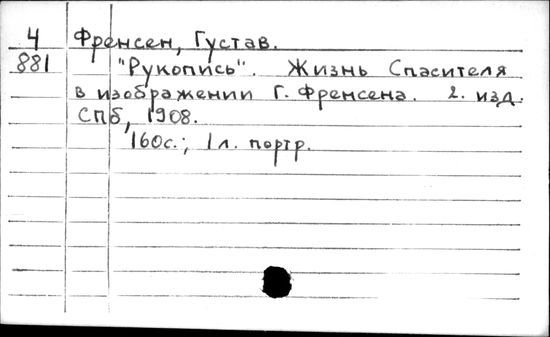 4 Френсен, Густав.
881 "Рукопись". Жизнь Спасителя
в изображении Г. Френсена. 2. изд.
СПб, 1908.
160с.; 1л. портр.